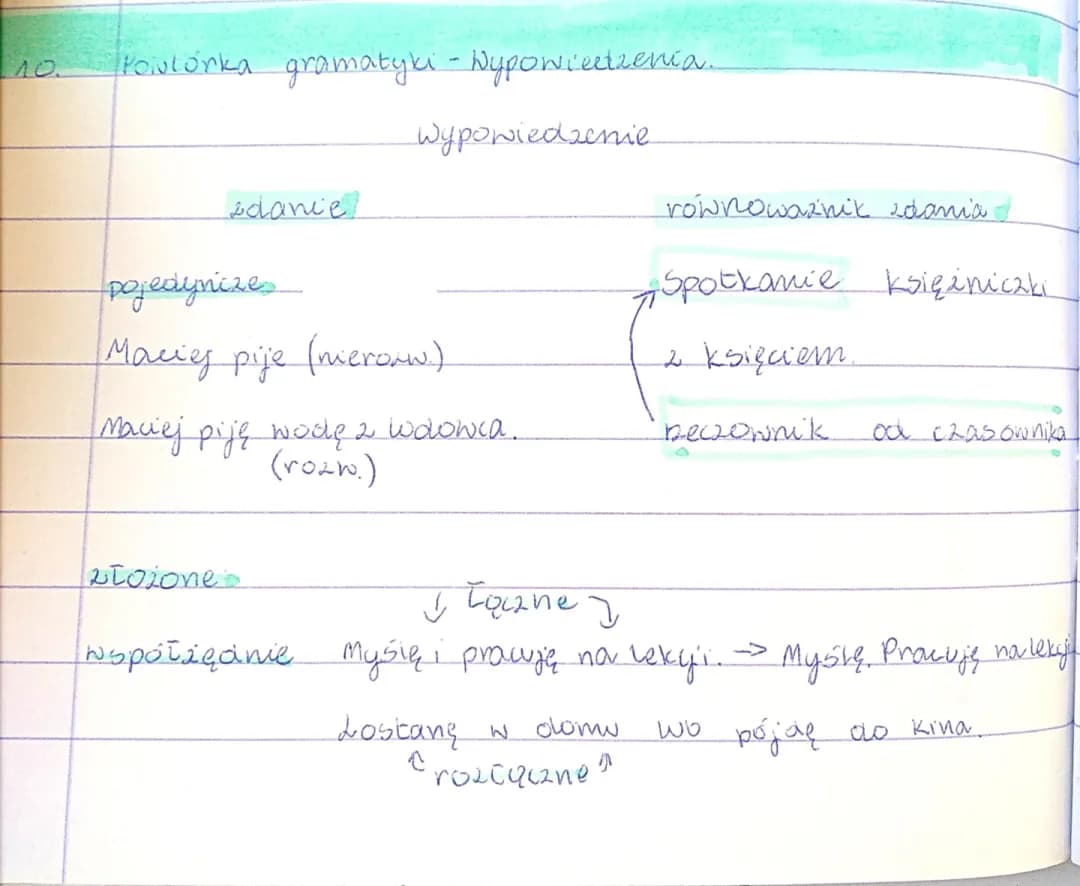 10. Powtórka gramatyki - Wypowiedzenia.
Wypowiedzenie
zdanie równoważnik zdania
pojedyncze Spotkanie księżniczki
Maciej pije (nierozw.) z księciem.
Maciej piję wodę z lodowca. rzeczownik od czasownika
(rozw.)
złożone
↓ łączne ↓
współrzędnie Myślę i pracuję na lekcji. → Myślę. Pracuję na lekcji
Zostanę w domu lub pójdę do kina.
↑ rozłączne ↑